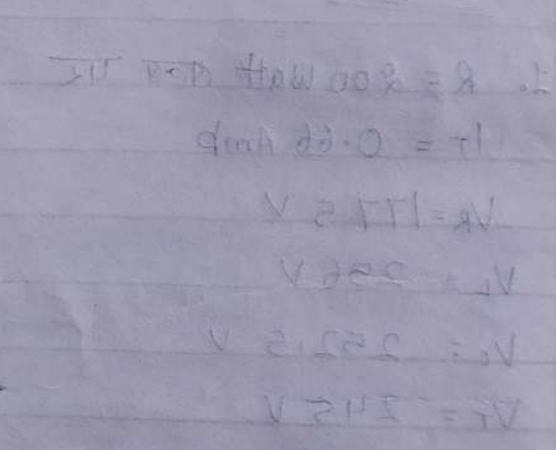 2. R = 200 Watt
IT = 0.66 Amp
VR = 177.5 V
VL = 256 V
VC = 252.5 V
VT = 245 V